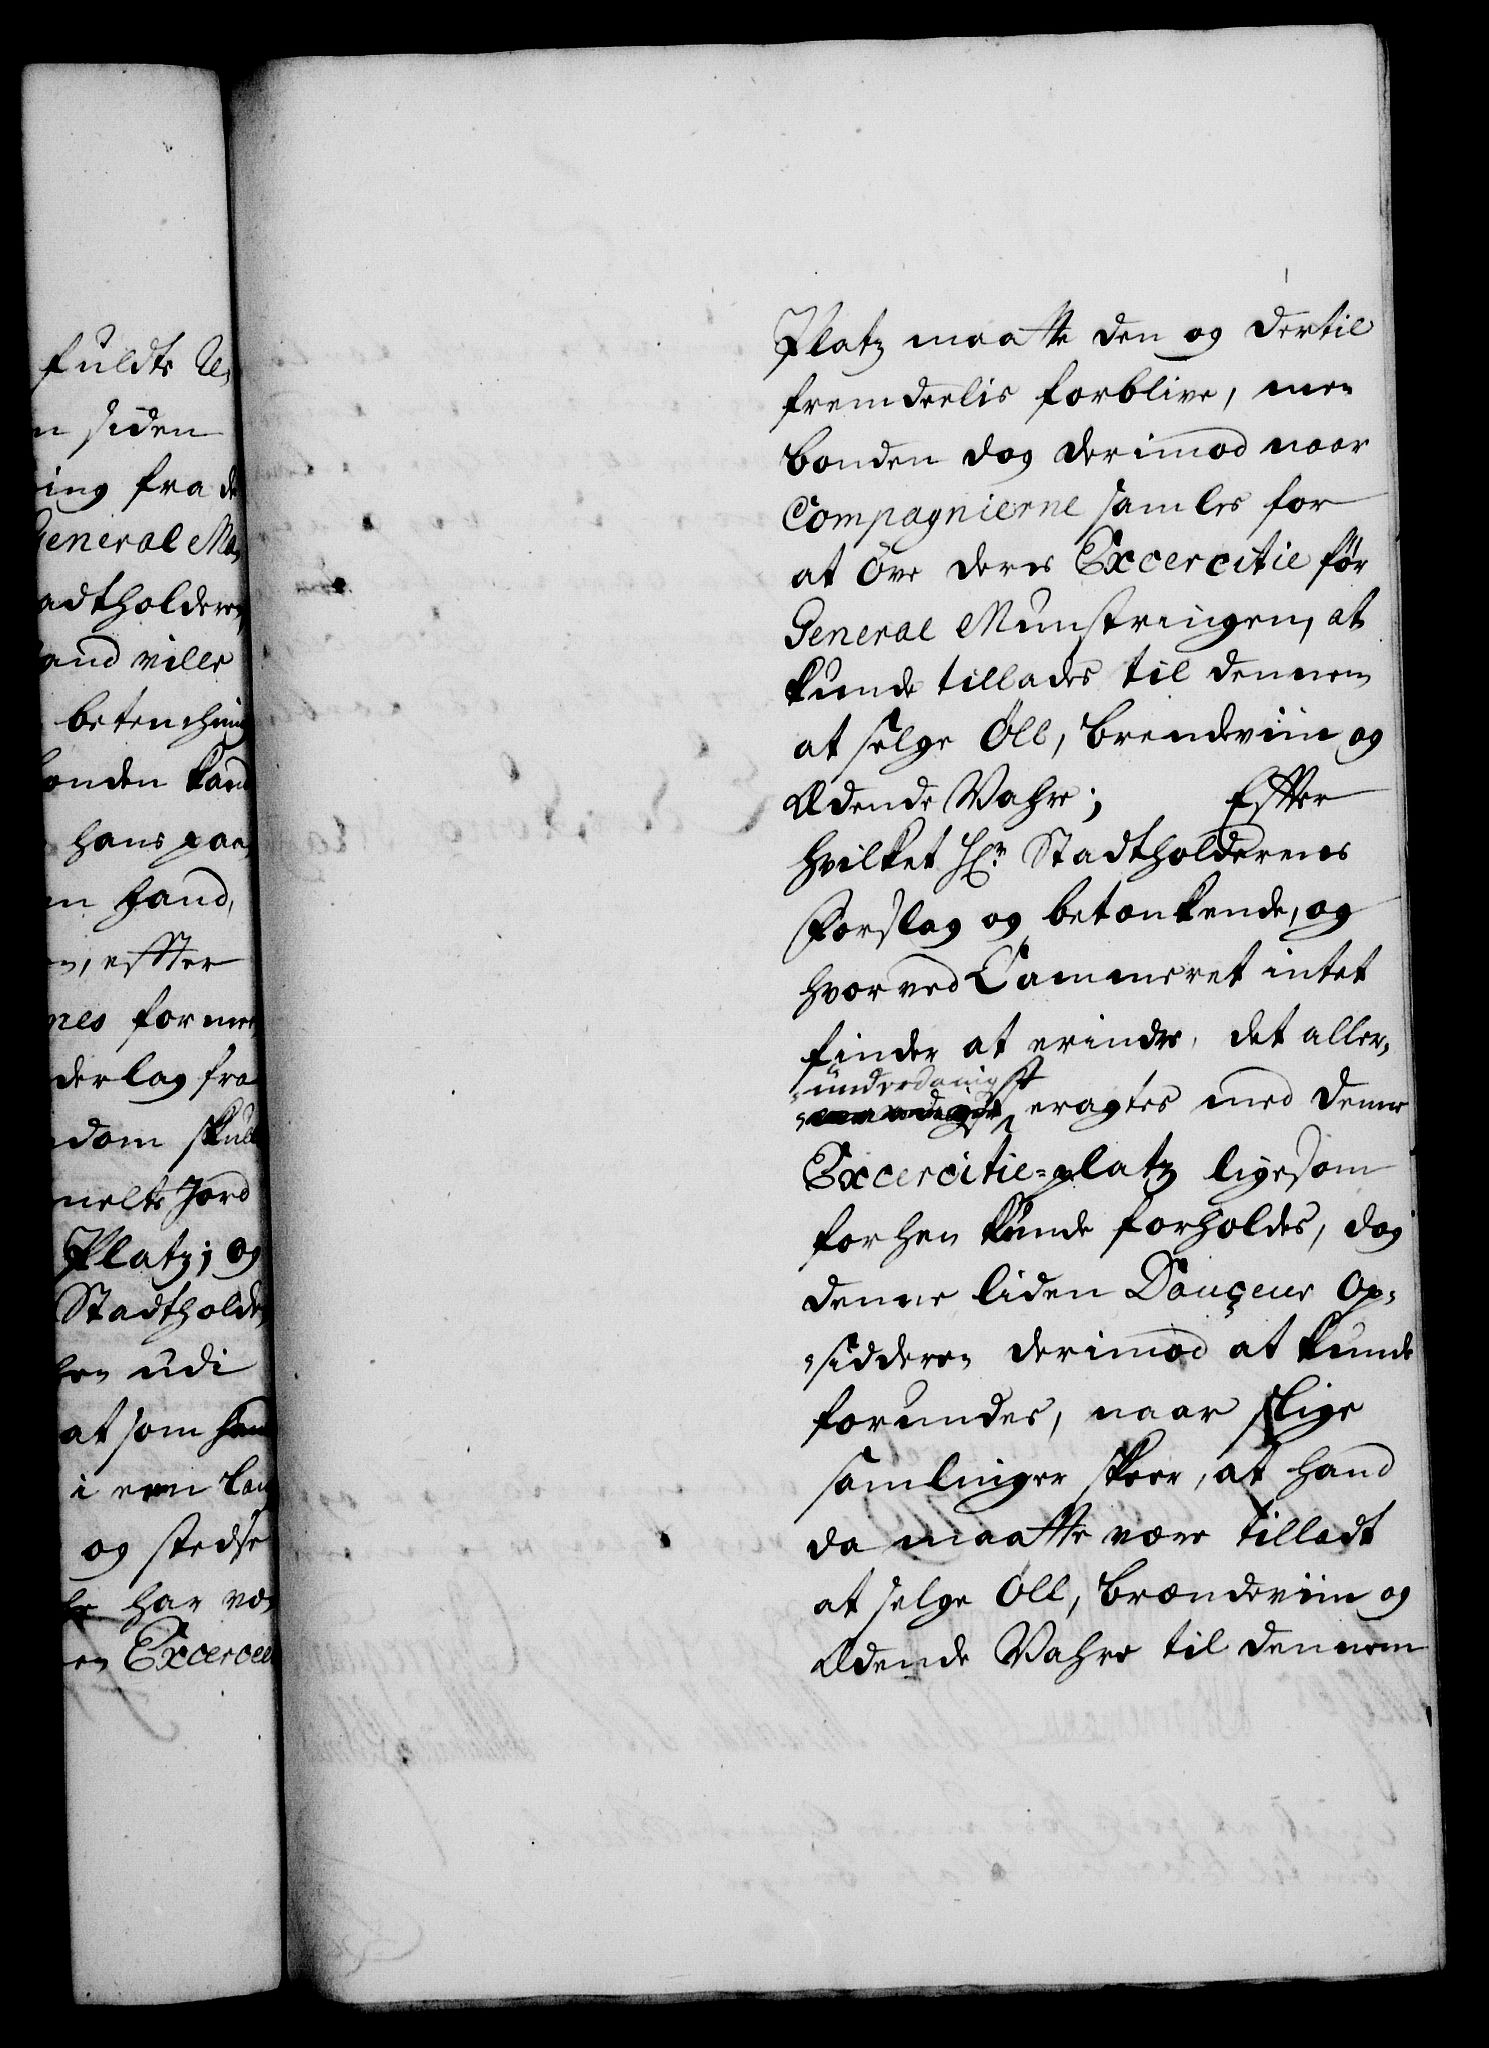 fuldte U,
n siden
ing fra de
General Mø,
adtholderen,
and ville
betenchning
onden kand
hans paa,
n fand,
n, effter
nes formee,
derlag fra
dom skull
melte Jord
Platz; og
Stadtholde,
hen udi
at som hand
i een lang
og stedse
he har væ,
en Excercee
Platz maatte den og dertil
fremdeelis forblive, men
bonden dog derimod naar
Compagnierne samles for
at öve deres Excercitie før
General Munstringen, at
kunde tillades til dennem
at selge Øll, brendeviin og
Ædende Vahre; Effter
hvilket Hr. Stadtholderens
Forslag og betænkende, og
hvorved Cammeret intet
finder at erindre, det aller,
underdanigst
eragtes med denne
Excercitie-platz ligesom
forhen kunde forholdes, dog
denne liden Douçeur Op,
sidderen derimod at kunde
forundes, naar slige
samlinger skeer, at hand
da maatte være tilladt
at selge Øll, brændeviin og
Ædende Vahre til dennem